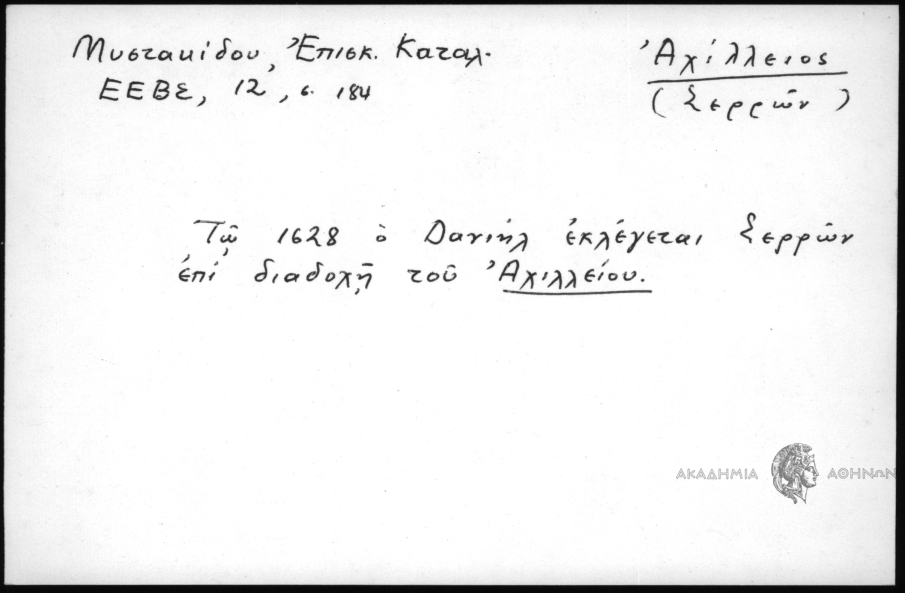 Μυστακίδου, Ἐπισκ. Καταλ.
ΕΕΒΣ, 12, σ. 184
Ἀχίλλειος
(Σερρῶν)
Τῷ 1628 ὁ Δανιὴλ ἐκλέγεται Σερρῶν
ἐπὶ διαδοχῇ τοῦ Ἀχιλλείου.
ΑΚΑΔΗΜΙΑ ΑΘΗΝΩΝ